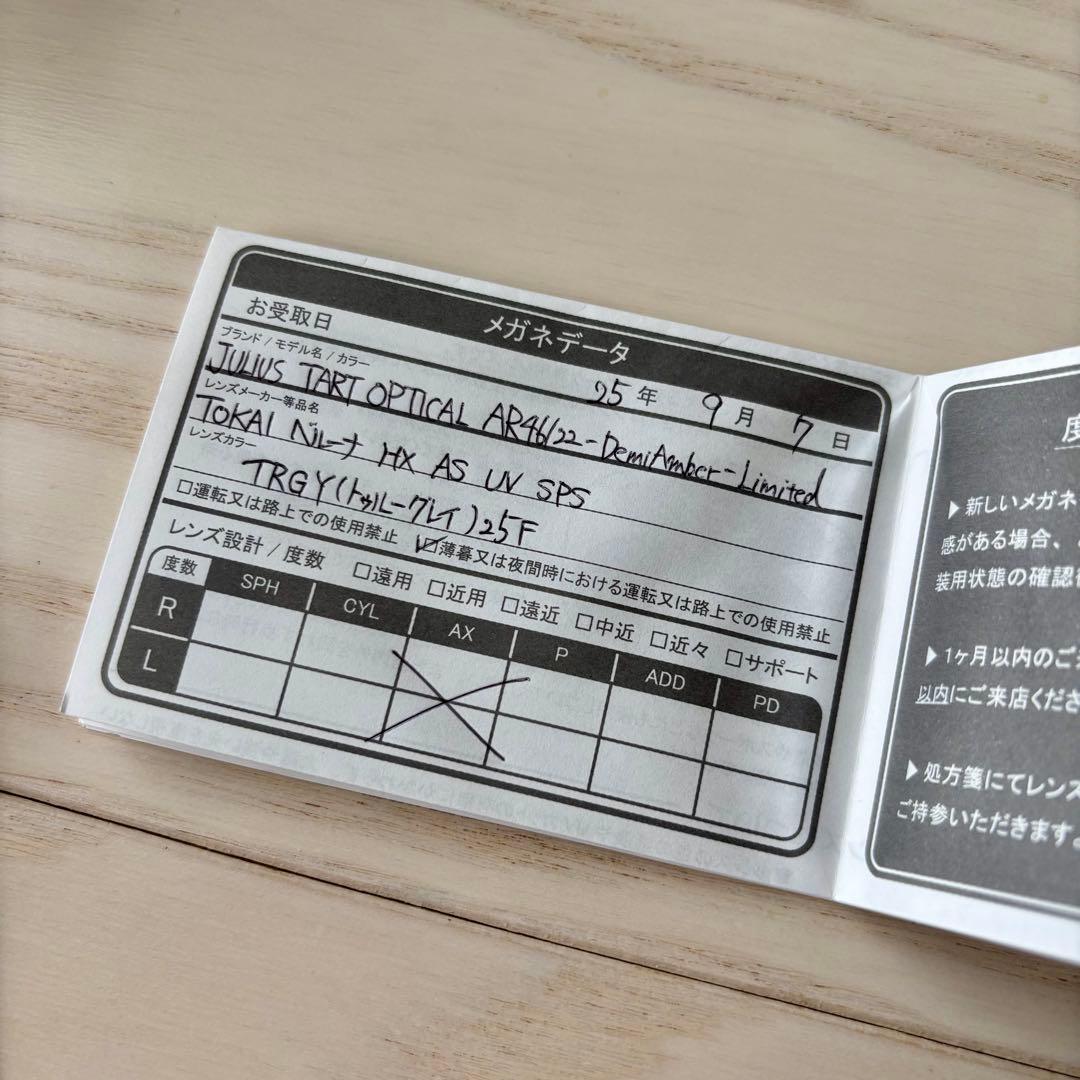 メガネデータ
お受取日 25年 9月 7日
ブランド / モデル名 / カラー
JULIUS TART OPTICAL AR46/22-DemiAmber-Limited
レンズメーカー等品名
TOKAI ベルーナ HX AS UV SPS
レンズカラー
TRGY(トゥルーグレイ)25F
□運転又は路上での使用禁止 ☑薄暮又は夜間時における運転又は路上での使用禁止
レンズ設計 / 度数 □遠用 □近用 □遠近 □中近 □近々 □サポート
度数 SPH CYL AX P ADD PD
R
L
度
▶新しいメガネ
感がある場合、
装用状態の確認
▶1ヶ月以内のご
以内にご来店くださ
▶処方箋にてレンズ
ご持参いただきます。